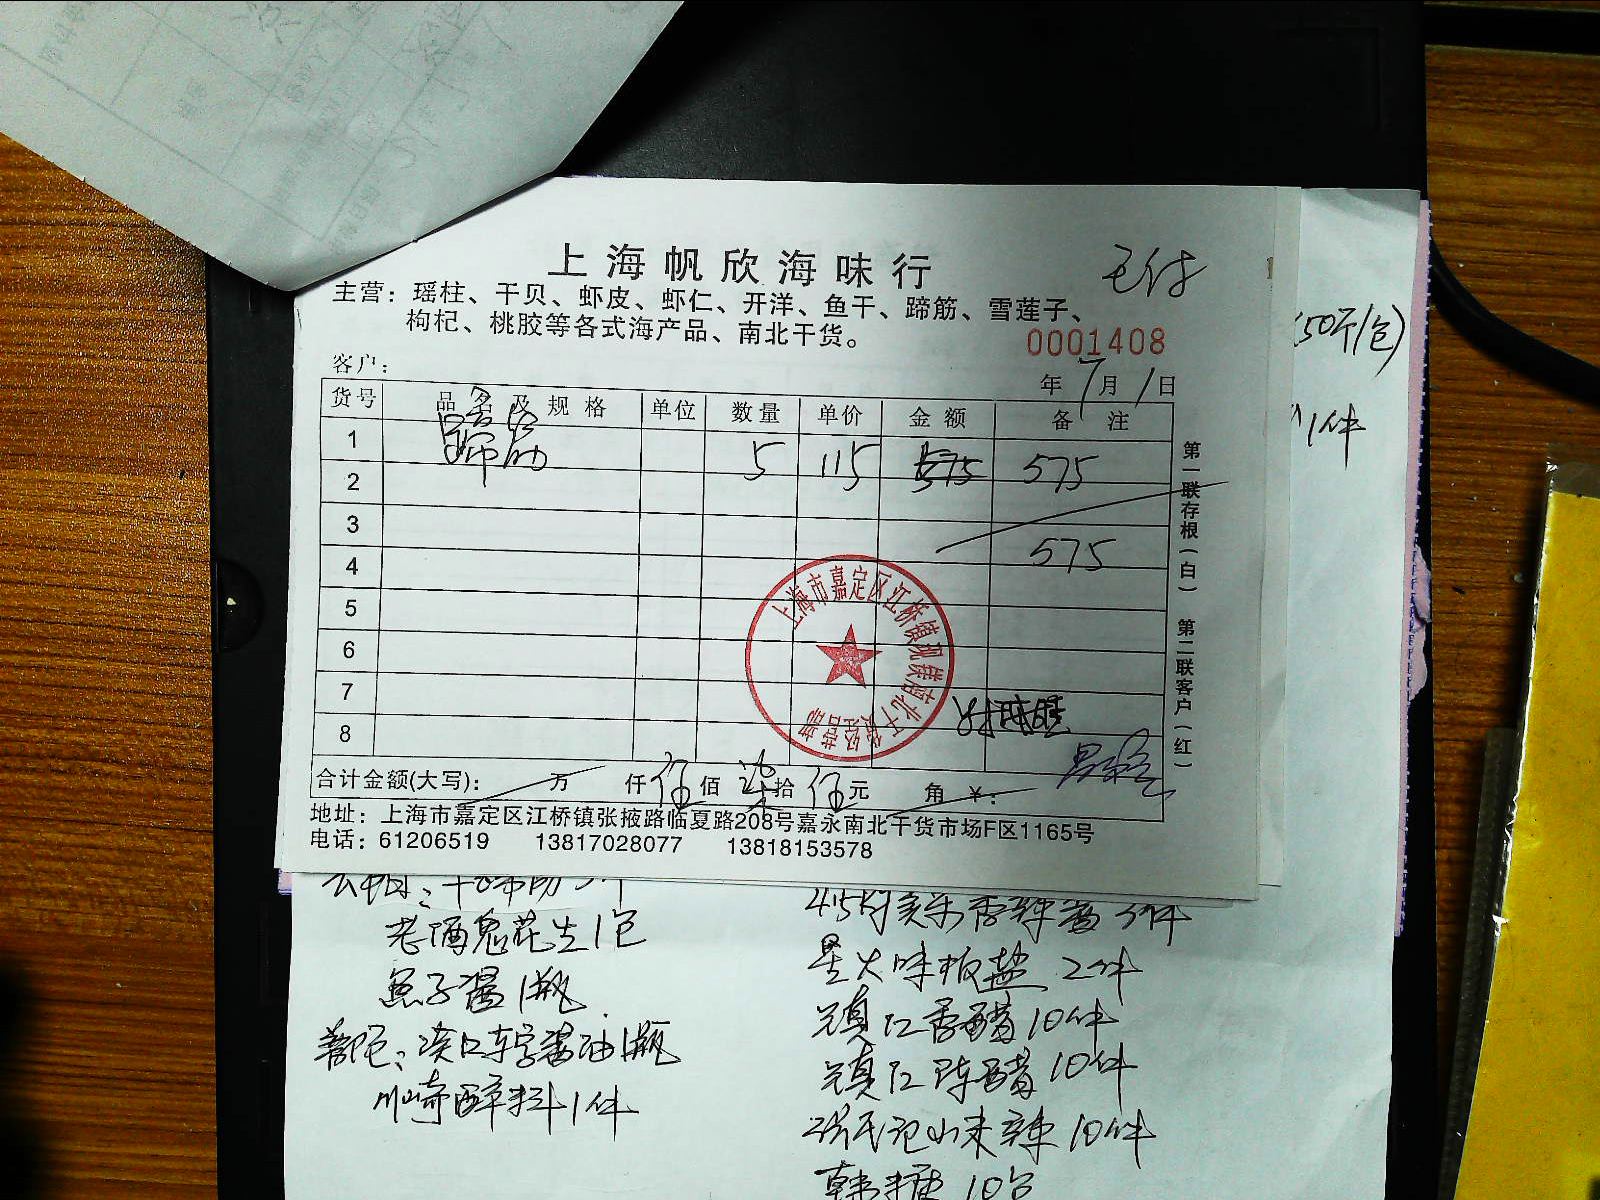 上海帆欣海味行
主营：瑶柱、干贝、虾皮、虾仁、开洋、鱼干、蹄筋、雪莲子、
枸杞、桃胶等各式海产品、南北干货。
0001408
客户：
年 7月 1日
货号 品名及规格 单位 数量 单价 金额 备注
1 蹄筋 5 115 575 575
2
3 575
4
5
6
7
8
合计金额(大写)： 万 仟 伍佰 柒拾 伍元 角 ￥：
地址：上海市嘉定区江桥镇张掖路临夏路208号嘉永南北干货市场F区1165号
电话：61206519 13817028077 13818153578
第一联存根(白) 第二联客户(红)
(50斤/包)
1件
老酒鬼花生1包
鱼子酱1瓶
普陀：淡口东字酱油1瓶
川崎醉料1件
星火味极盐 2件
镇江香醋10件
镇江陈醋10件
10件
韩糖 10包